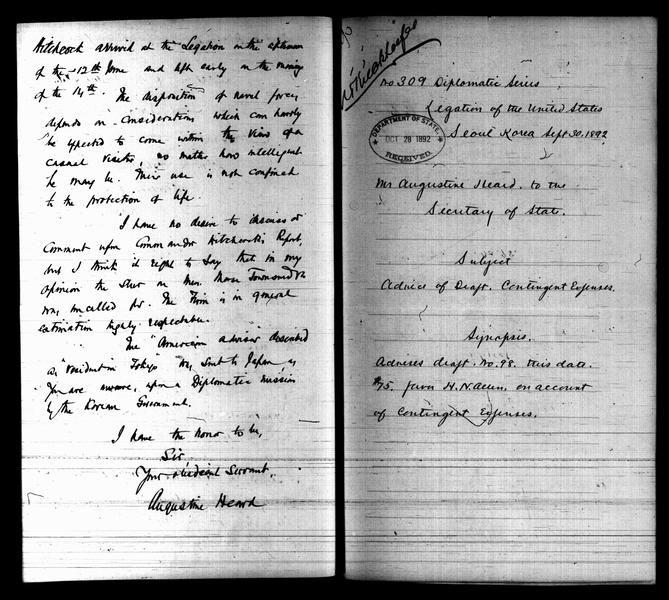 Hitchcock arrived at the Legation on the afternoon
of the 12th June and left early on the morning
of the 14th. The disposition of naval forces
depends on considerations which can hardly
be expected to come within the view of a
casual visitor, no matter how intelligent
he may be. Their use is not confined
to the protection of life.
I have no desire to discuss or
comment upon Commander Hitchcock's Report,
but I think it right to say that in my
opinion the slur on Messrs. Morse Townsend &
was uncalled for. The Firm is in general
estimation highly respectable.
The "American adviser described
as "resident in Tokyo" was sent to Japan, as
you are aware, upon a Diplomatic mission
by the Korean Government.
I have the honor to be,
Sir
Your obedient Servant,
Augustine Heard
No 309 Diplomatic Series
Legation of the United States
Seoul Korea Sept 30, 1892
DEPARTMENT OF STATE.
OCT 28 1892
RECEIVED.
Mr Augustine Heard. to the
Secretary of State.
Subject
Advice of Draft. Contingent Expenses.
Synopsis.
Advises draft. No. 98. this date.
$75. favor H. N. Allen, on account
of Contingent Expenses.